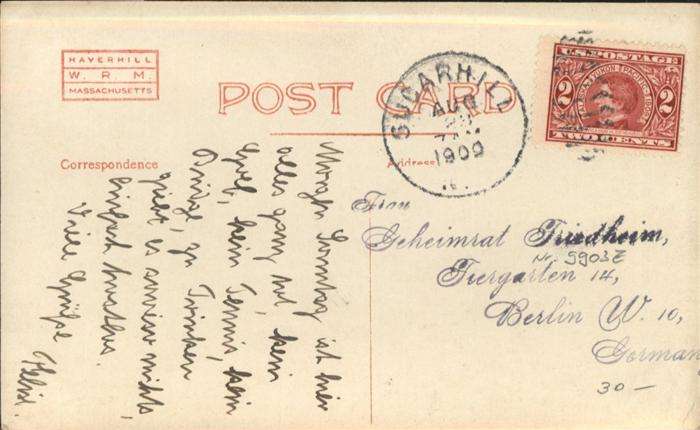 HAVERHILL
W. R. M.
MASSACHUSETTS
POST CARD
Correspondence
Address
SUGARHILL
AUG
7 AM
1909
U.S. POSTAGE
ALASKA-YUKON-PACIFIC
1909
2 2
TWO CENTS
Morgen Sonntag ist hier
alles ganz tot, kein
Golf, kein Tennis, kein
zu Trinken
giebt es sowieso nichts
einfach
Viele Grüße
Frau
Geheimrat Friedheim,
Nr. 5903Z
Tiergarten 14,
Berlin W. 10,
German
30 –